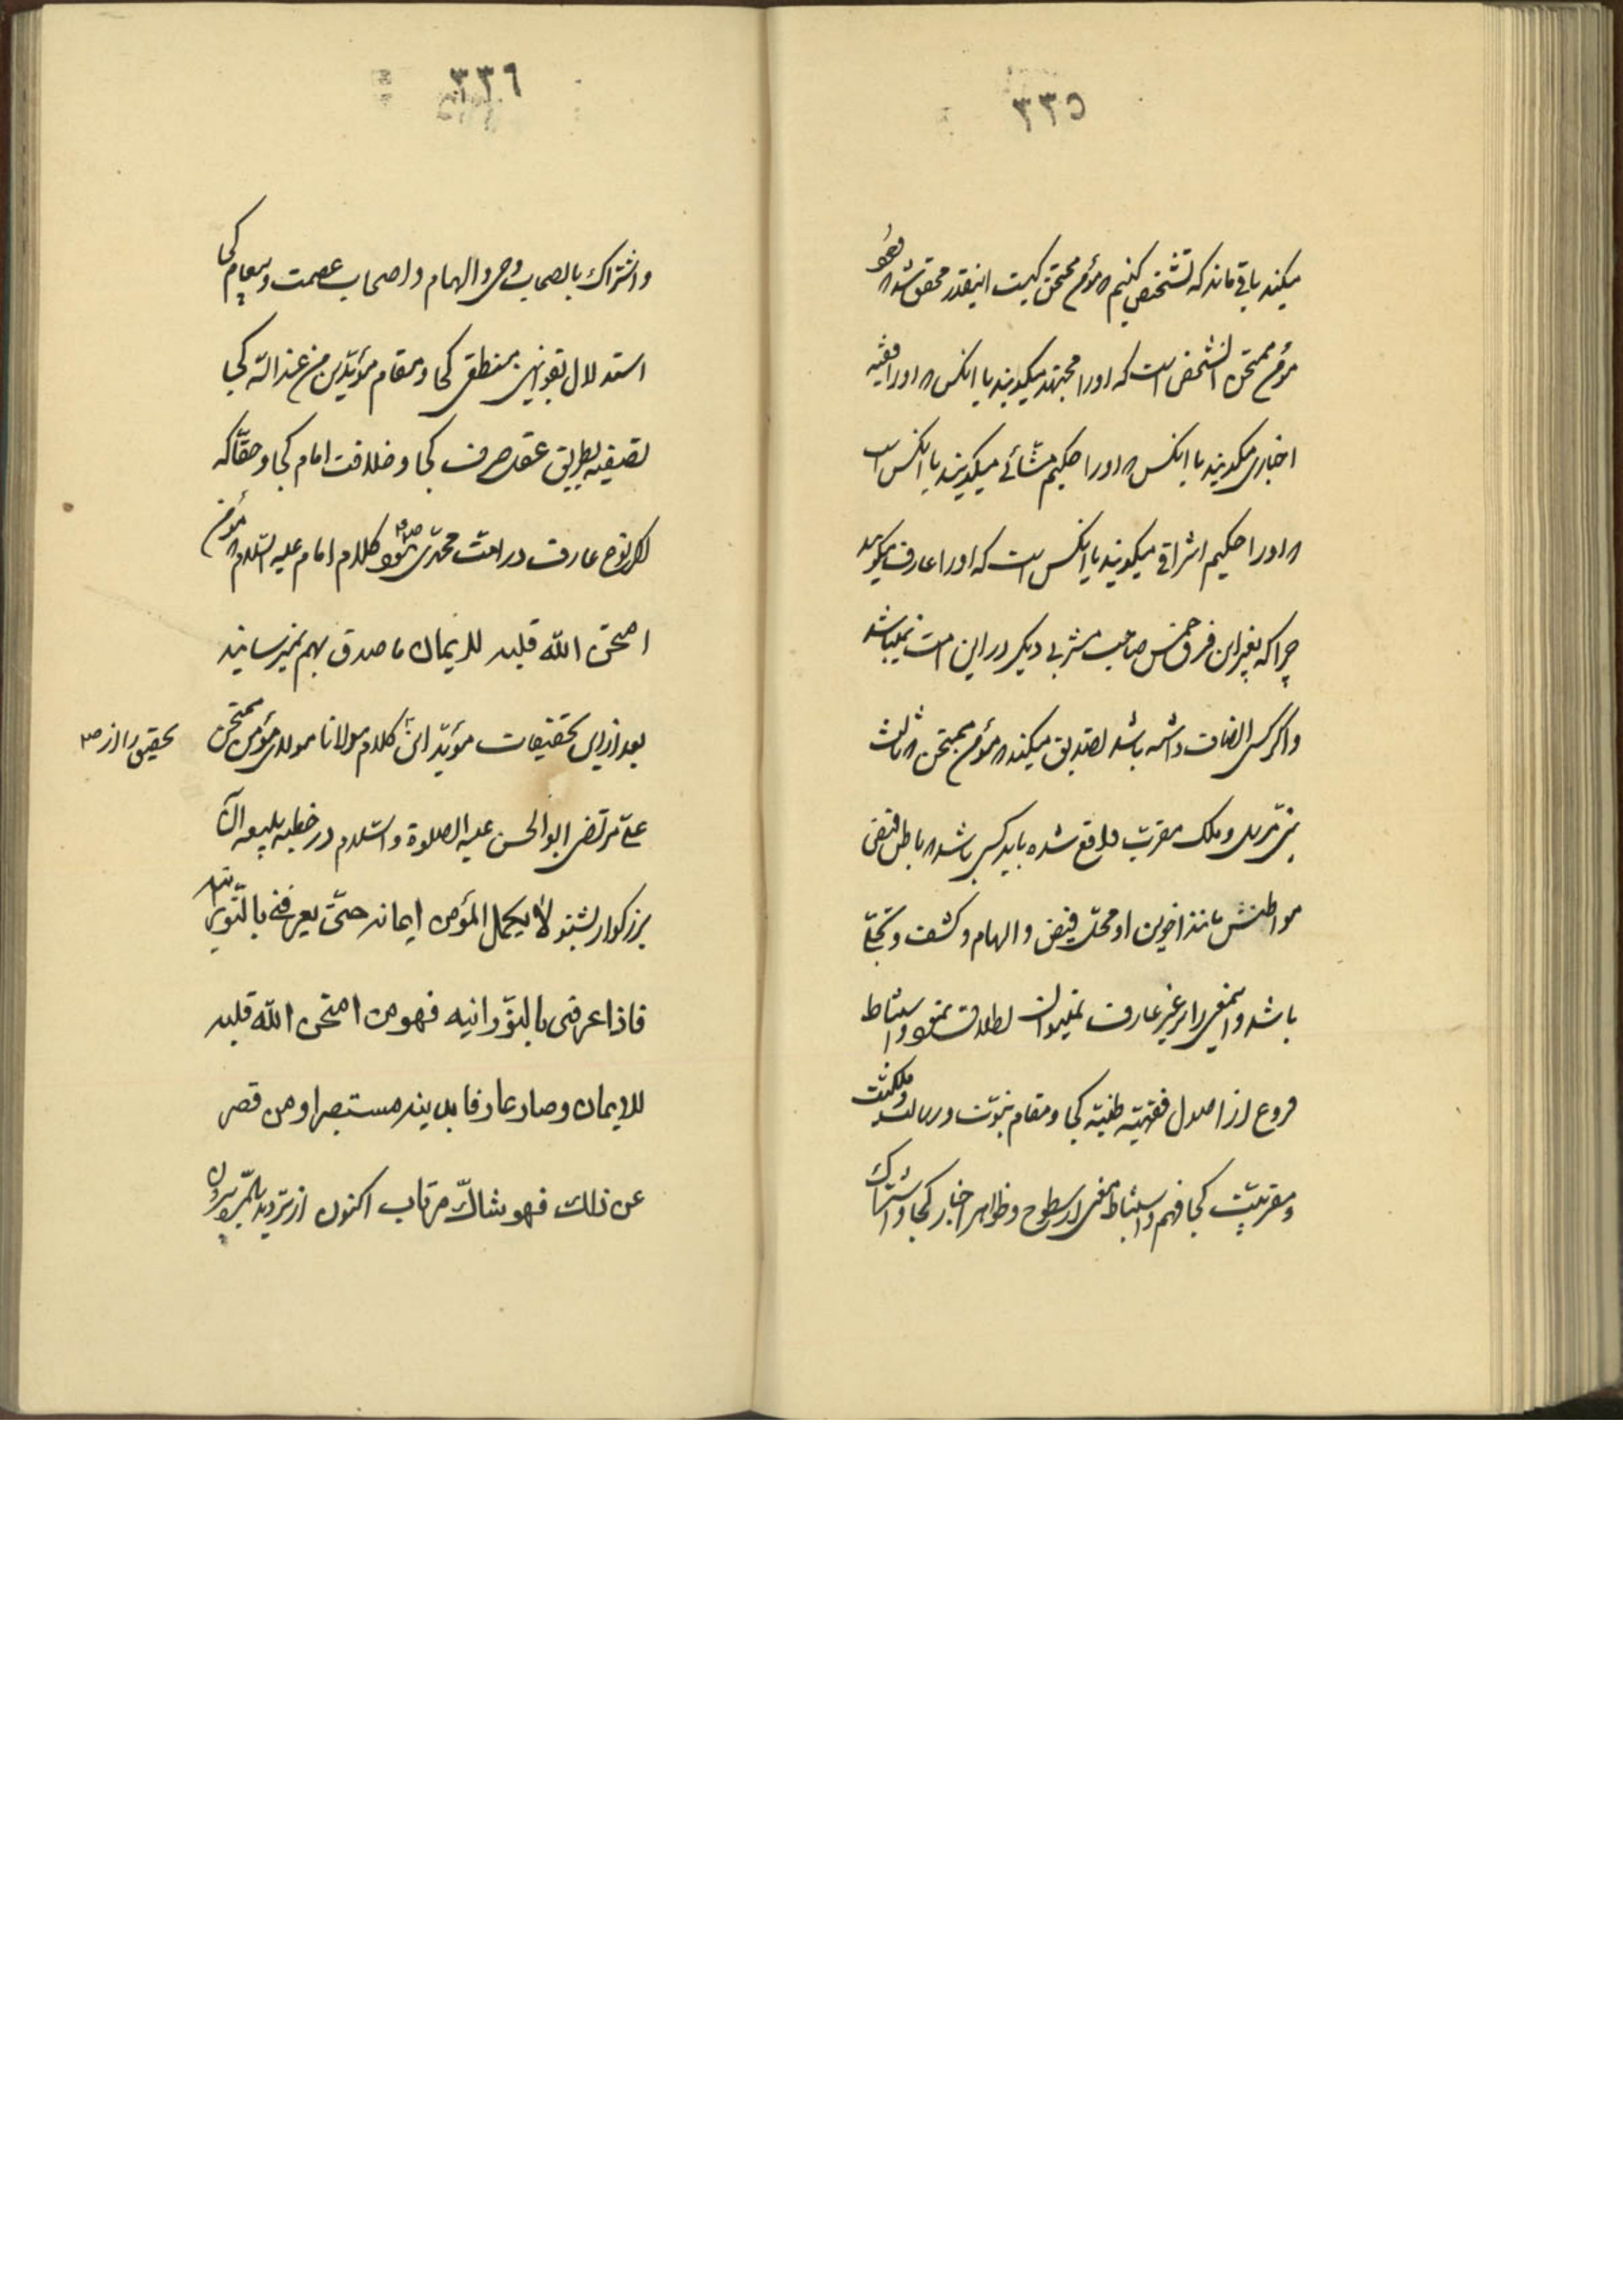 ٣٣٥
میکند باقی ماند که تشخیص کنیم که مؤمن ممتحن کیست اینقدر محقق شد که
مؤمن ممتحن آن شخص است که او را مجتهد میگویند یا آنکس که او را فقیه
اخباری میگویند یا آنکس که او را حکیم مشائی میگویند یا آنکس است
که او را حکیم اشراقی میگویند یا آنکس است که او را عارف میگویند
چرا که بغیر این فرق خمس صاحب مشربی دیگر در این امت نمیباشد
و اگر کسی انصاف داشته باشد تصدیق میکند که مؤمن ممتحن که ثالث
نبی مرسل و ملک مقرب واقع شده باید کسی باشد که باطن فیض
مواطنش مانند اخوین او محل فیض و الهام و کشف و تجلی
باشد و اینمعنی را بر غیر عارف نمیتوان اطلاق نمود و استنباط
فروع از اصول فقهیه ظنیه کجا و مقام نبوت و رسالت و ملکیت
و مقربیت کجا فهم و استنباط معنی از سطوح و ظواهر اخبار کجا و اشتراک
٣٣٦
و اشتراک با اصحاب وحی و الهام و اصحاب عصمت و مقام کجا
استدلال بقوانین منطقی کجا و مقام مؤیدین من عند الله کجا
تصفیه بطریق عقل صرف کجا و خلافت امام کجا و حقا که
اگر نوع عارف در امت محمدی ص نبود کلام امام علیه السلام که مؤمن
امتحن الله قلبه للایمان ما صدق بهم نمیرسانید
بعد از این تحقیقات مؤید این کلام مولانا و مولی مؤمن ممتحن
تحقیق را از ص
علی مرتضی ابو الحسن علیه الصلوة و السلام در خطبه بلیغه آن
بزرگوار بشنو لا یکمل المؤمن ایمانه حتی یعرفنی بالنورانیه
فاذا عرفنی بالنورانیه فهو من امتحن الله قلبه
للایمان و صار عارفا بدینه مستبصرا و من قصر
عن ذلک فهو شاک مرتاب اکنون از تردید بالمره بیرون